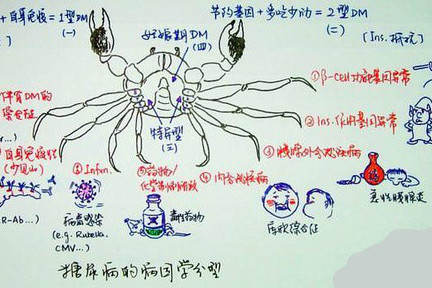 + 自身免疫 = 1型DM
(一)
妊娠期DM
(四)
节约基因 + 多吃少动 = 2型DM
(二)
[Ins.抵抗]
特异型
(三)
①β-cell功能基因异常
②Ins.作用基因异常
③胰腺外分泌疾病
④内分泌疾病
⑤药物/
⑥Infen.
伴有DM的
病毒感染
(e.g. Rubella.
CMV...)
毒性药物
库欣综合征
急性胰腺炎
R-Ab...)
糖尿病的病因学分型